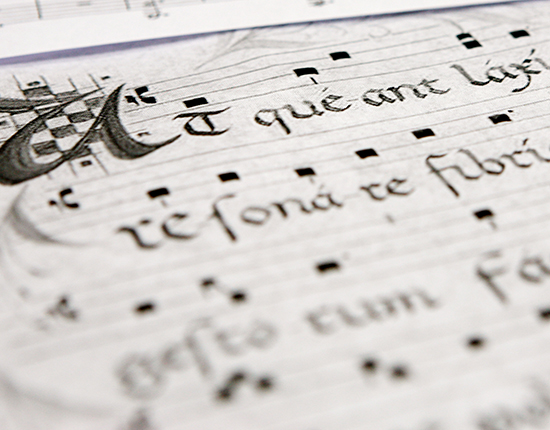 UT qué-ant láxi
re ſoná-re fibri
Geſto rum Fá